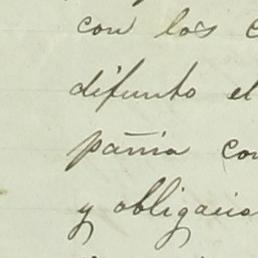 con los
difunto el
pañia con
y obligacio